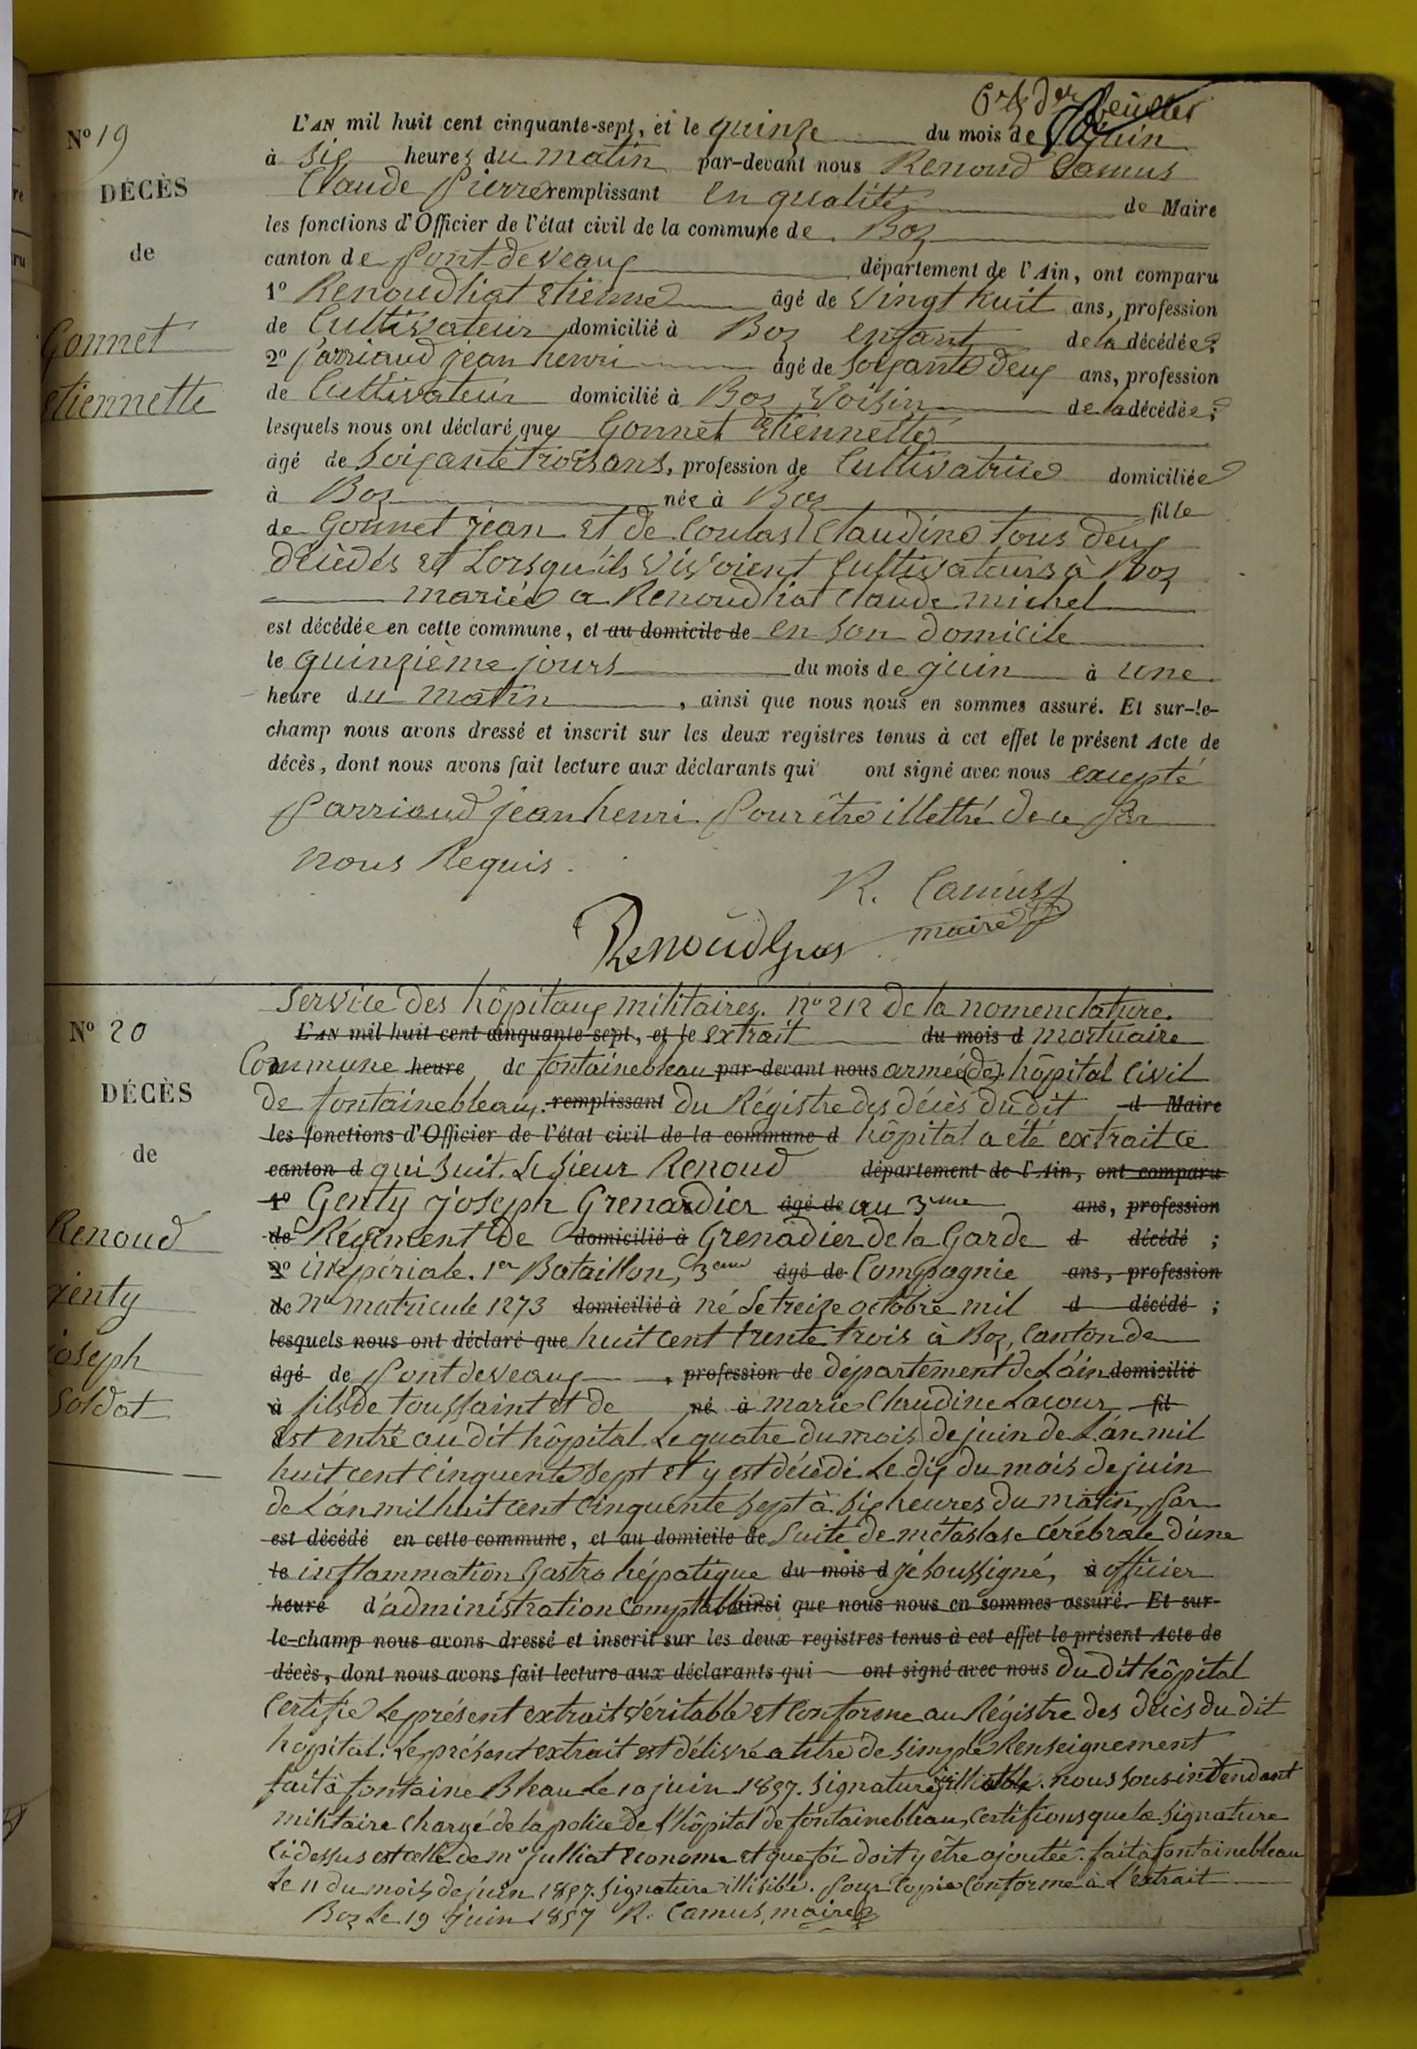 6e & der feuillet
N° 19
DÉCÈS
de
Gonnet
etiennette
L'AN mil huit cent cinquante-sept, et le quinze du mois de juin
à six heures du matin par-devant nous Renoud Camus
Claude Pierre remplissant en qualité de Maire
les fonctions d'Officier de l'état civil de la commune de Boz
canton de Pont-de-veaux département de l'Ain, ont comparu
1° Renoudliat Etienne âgé de vingt huit ans, profession
de Cultivateur domicilié à Boz enfant de la décédée;
2° Parriaud jean henri âgé de soixante deux ans, profession
de Cultivateur domicilié à Boz Voisin de la décédée;
lesquels nous ont déclaré que Gonnet Etiennette
âgé de soixante trois ans, profession de Cultivatrice domiciliée
à Boz née à Boz fille
de Gonnet jean et de Coulas Claudine tous deux
décédés et Lorsqu'ils vivoient Cultivateurs à Boz
mariée a Renoudliat Claude michel
est décédée en cette commune, et au domicile de en son domicile
le quinzième jours du mois de juin à une
heure du matin, ainsi que nous nous en sommes assuré. Et sur-le-
champ nous avons dressé et inscrit sur les deux registres tenus à cet effet le présent Acte de
décès, dont nous avons fait lecture aux déclarants qui ont signé avec nous excepté
Parriaud jean henri Pour être illettré de ce Par
nous Requis.
R. Camus
maire
Renoud
N° 20
DÉCÈS
de
Renoud
genty
joseph
Soldat
Service des hôpitaux militaires. n° 212 de la nomenclature.
L'AN mil huit cent cinquante-sept, et le extrait du mois d mortuaire
Commune heure de fontainebleau par-devant nous armée (de) hôpital Civil
de fontainebleau. remplissant du Régistre des décès du dit d Maire
les fonctions d'Officier de l'état civil de la commune d hôpital a été extrait ce
canton d qui suit. Le sieur Renoud département de l'Ain, ont comparu
1° Genty joseph Grenadier âgé de au 3eme ans, profession
de Régiment de domicilié à Grenadier de la Garde d décédé;
2° impériale. 1er Bataillon, 3eme âgé de Compagnie ans, profession
de n° matricule 1273 domicilié à né Le treize octobre mil d décédé;
lesquels nous ont déclaré que huit cent trente trois à Boz, Canton de
âgé de Pont de veaux, profession de département de L'ain domicilié
à fils de toussaint et de né à marie Claudine Lacour fil
est entré au dit hôpital. Le quatre du mois de juin de L'an mil
huit cent cinquente sept et y est décédé Le dix du mois de juin
de L'an mil huit cent cinquente sept à six heures du matin, Par
est décédé en cette commune, et au domicile de Suite de métastase cérébrale d'une
le inflammation Gastro hépatique du mois d je soussigné, à officier
heure d'administration Comptable ainsi que nous nous en sommes assuré. Et sur-
le-champ nous avons dressé et inscrit sur les deux registres tenus à cet effet le présent Acte de
décès, dont nous avons fait lecture aux déclarants qui ont signé avec nous du dit hôpital
Certifie Le présent extrait véritable et Conforme au Régistre des décès du dit
hôpital. Le présent extrait est délivré a titre de simple Renseignement
fait à fontaine Bleau Le 10 juin 1857. Signature illisible. nous sous intendant
militaire Chargé de la police de L'hôpital de fontainebleau, Certifions que la Signature
Ci dessus est celle de mr julliat Econome et que foi doit y être ajoutée. fait à fontainebleau
Le 11 du mois de juin 1857. Signature illisible. Pour Copie Conforme à L'extrait
Boz Le 19 juin 1857 R. Camus, maire